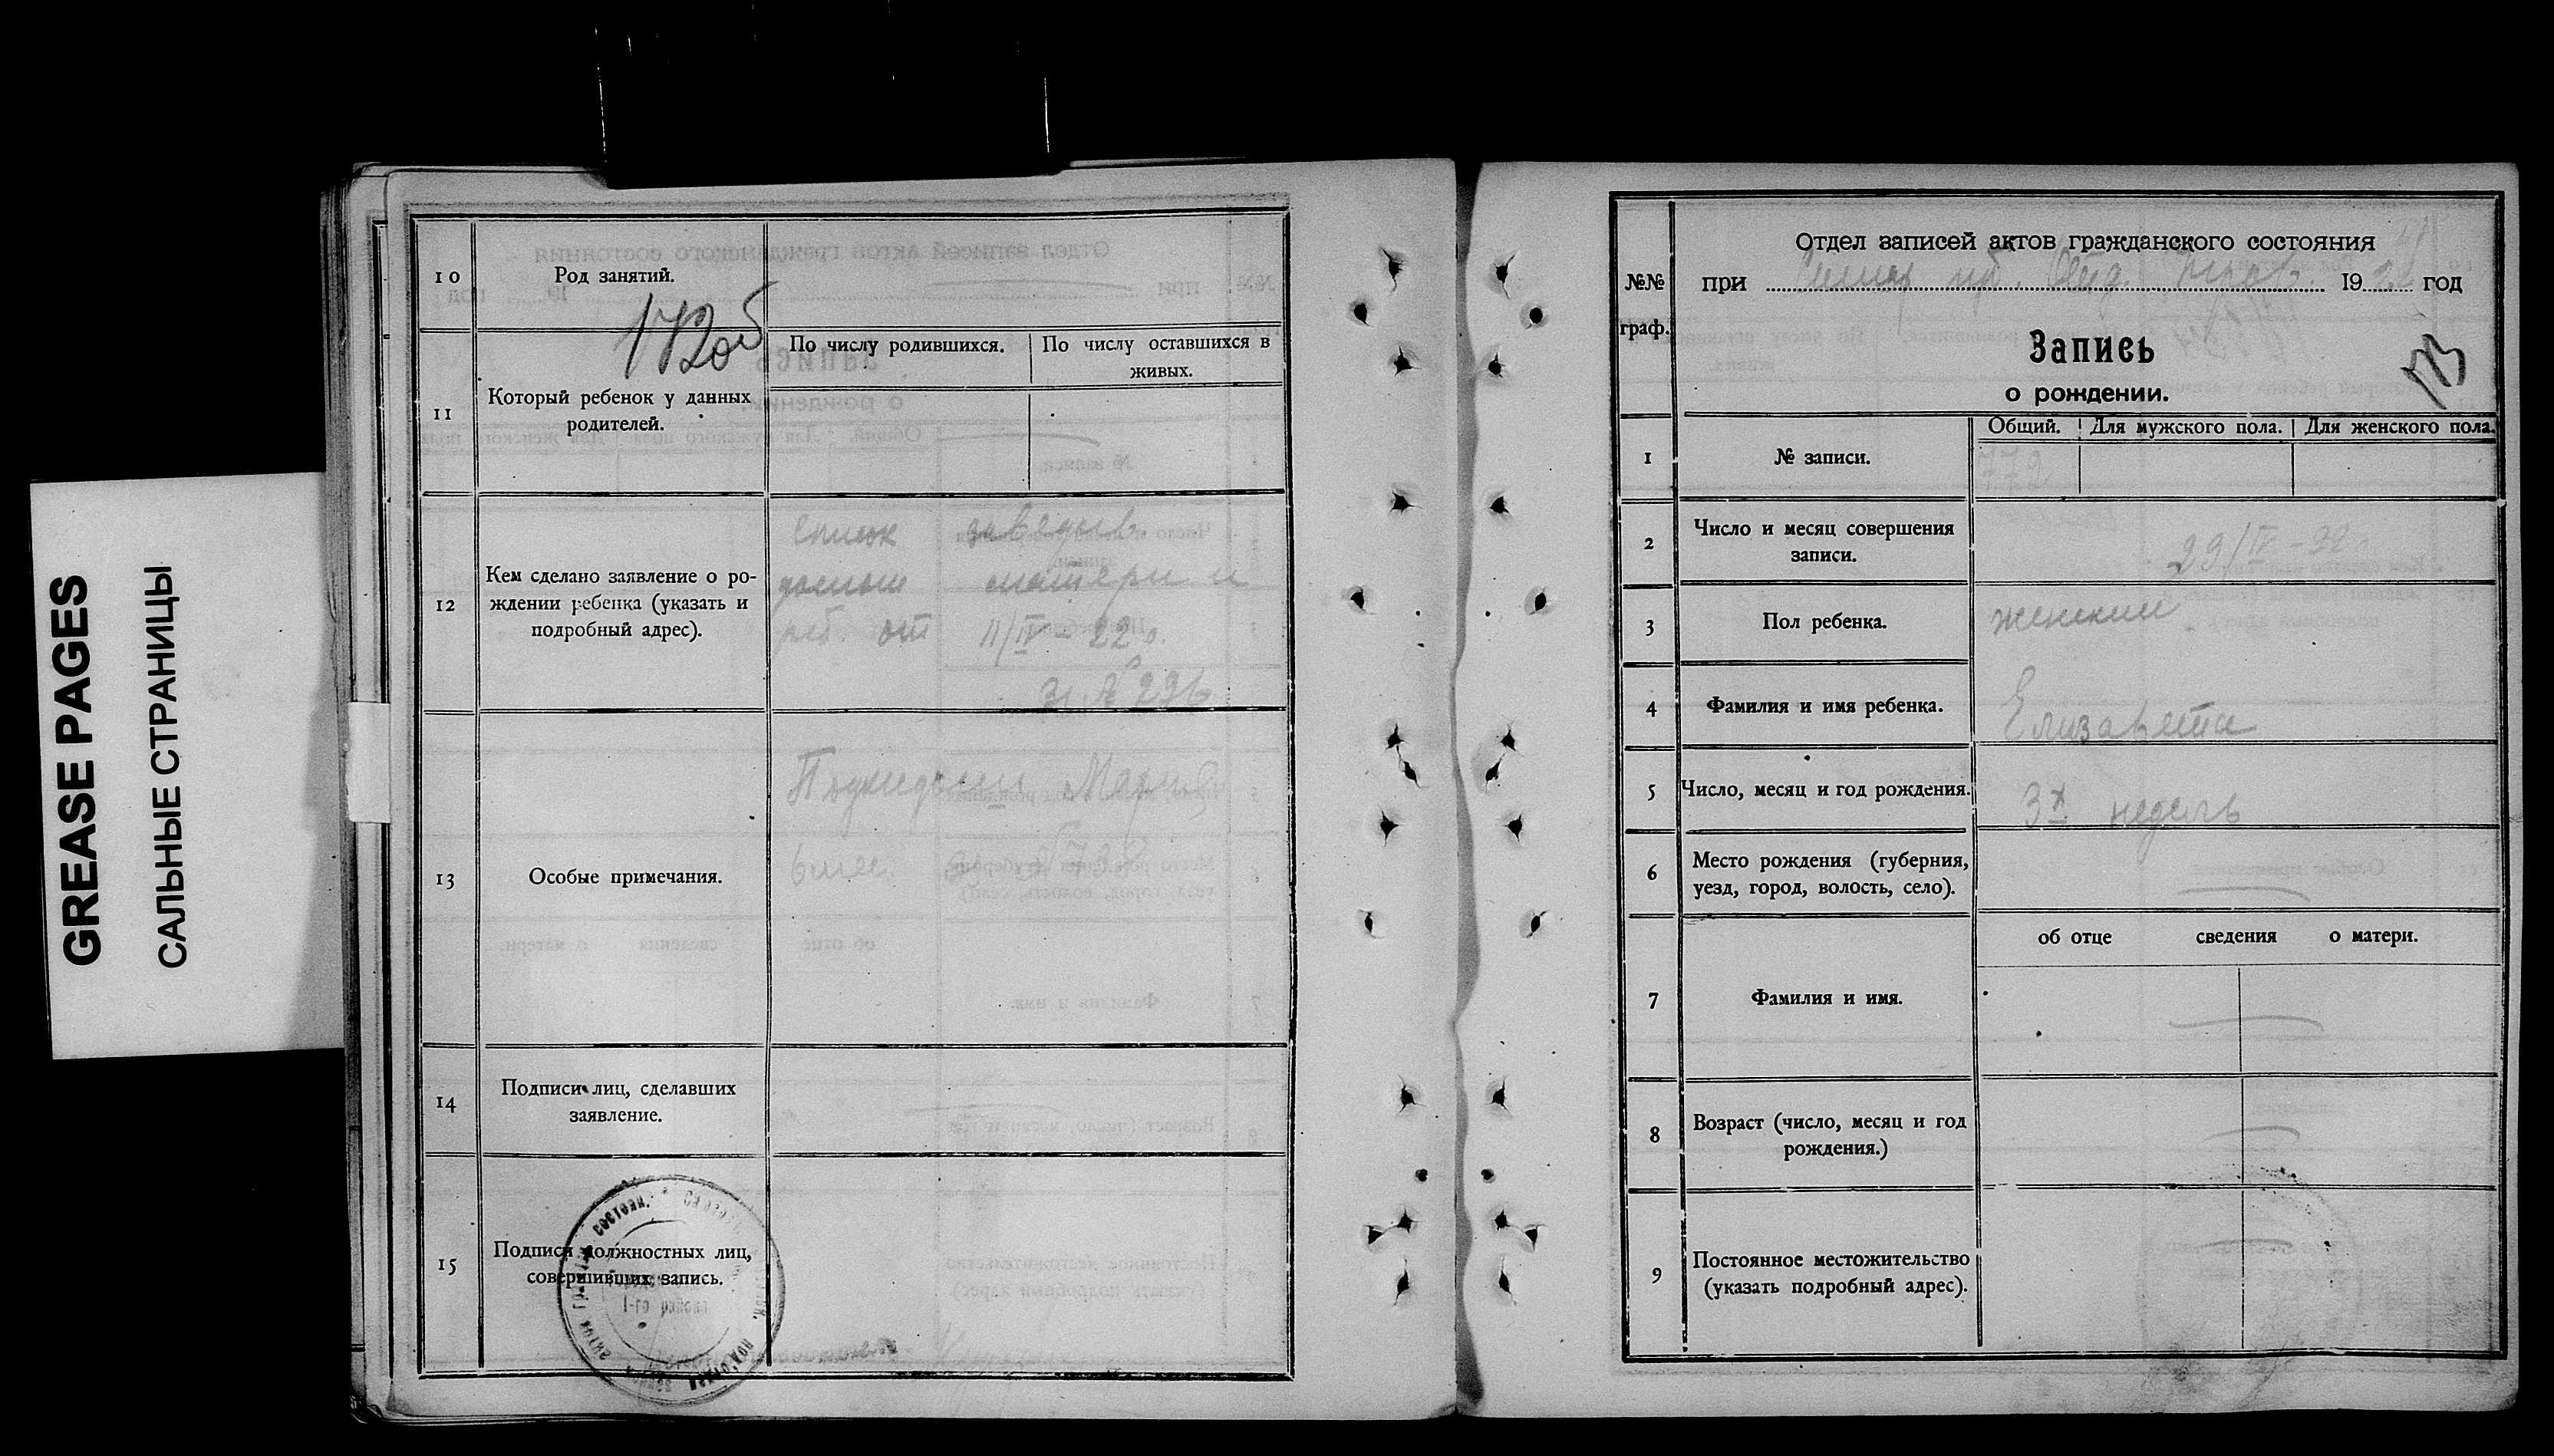 GREASE PAGES
САЛЬНЫЕ СТРАНИЦЫ
10
Род занятий.
172об
11
Который ребенок у данных
родителей.
По числу родившихся.
По числу оставшихся в
живых.
12
Кем сделано заявление о ро-
ждении ребенка (указать и
подробный адрес).
список заведыв.
домом матери и
реб. от 11/IV - 22 г.
13
Особые примечания.
Мария
14
Подписи лиц, сделавших
заявление.
15
Подписи должностных лиц,
совершивших запись.
1-го района
№№
граф.
Отдел записей актов гражданского состояния
при 1922 год
Запись
о рождении.
173
1
№ записи.
Общий.
Для мужского пола.
Для женского пола.
2
Число и месяц совершения
записи.
29/IV - 22
3
Пол ребенка.
женский
4
Фамилия и имя ребенка.
Елизавета
5
Число, месяц и год рождения.
3х недель
6
Место рождения (губерния,
уезд, город, волость, село).
об отце сведения о матери.
7
Фамилия и имя.
8
Возраст (число, месяц и год
рождения.)
9
Постоянное местожительство
(указать подробный адрес).